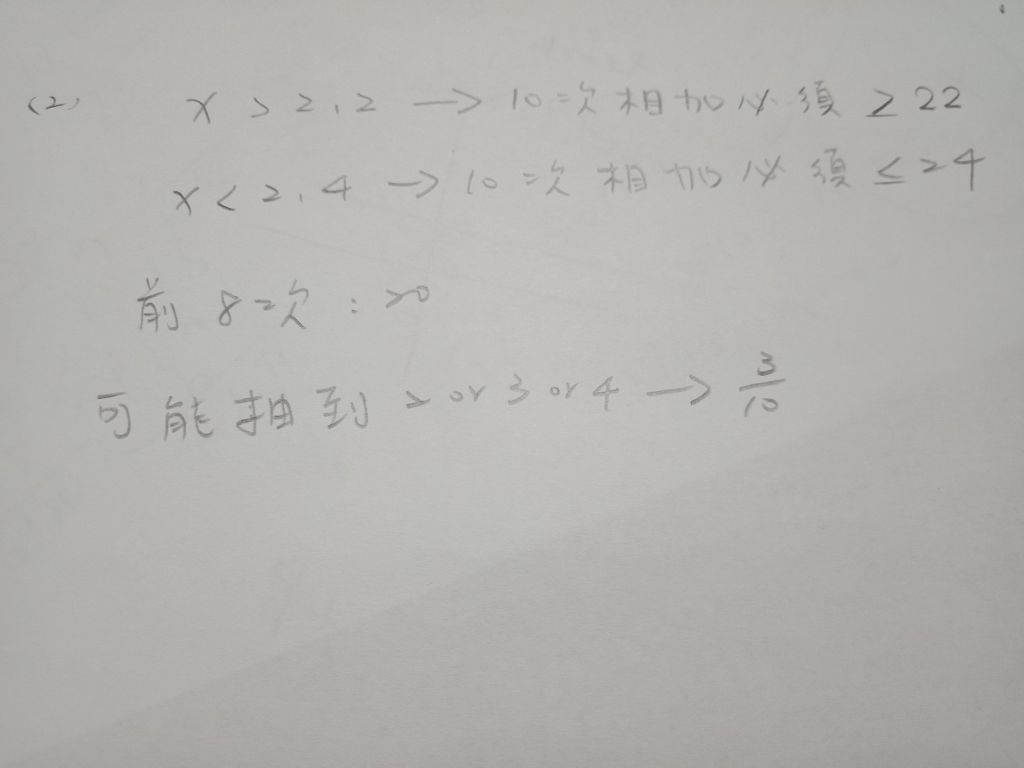 (2) x > 2.2 → 10次相加必須 ≥ 22
x < 2.4 → 10次相加必須 ≤ 24
前8次:20
可能抽到 2 or 3 or 4 → 3/10